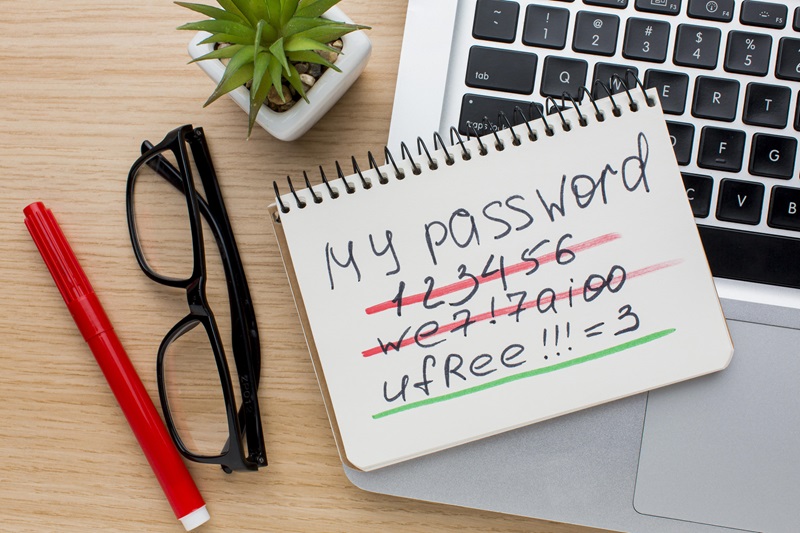 My password
123456
we7!7aioo
ufRee!!!=3
~ ! 1 @ 2 # 3 $ 4 % 5
tab Q W E R T
caps lock F G
C V B